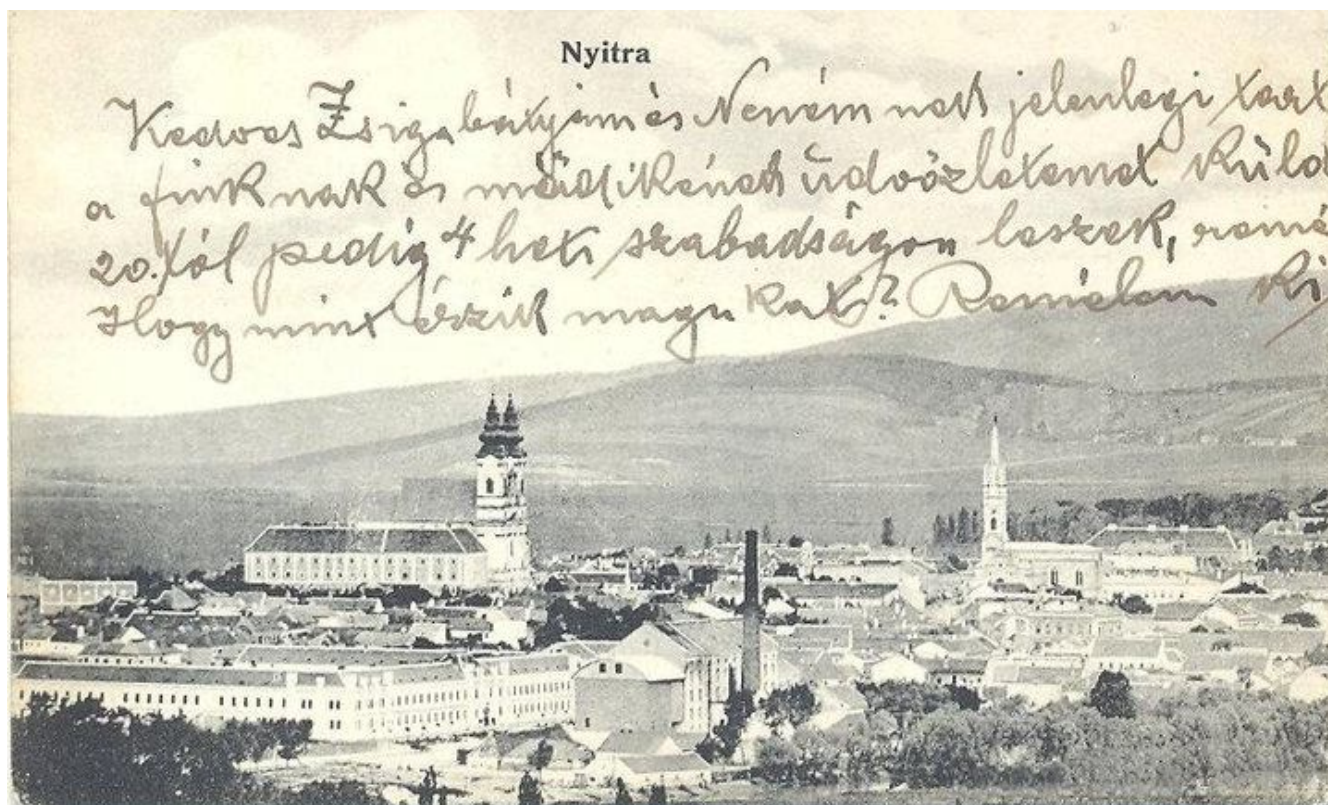 Nyitra
Kedves Zsiga bátyám és Nenémnek jelenlegi tart
a finknak és küld
20.tól pedig 4 heti szabadságon leszek, remé
Hogy mint érzik magukat? Remélem ki